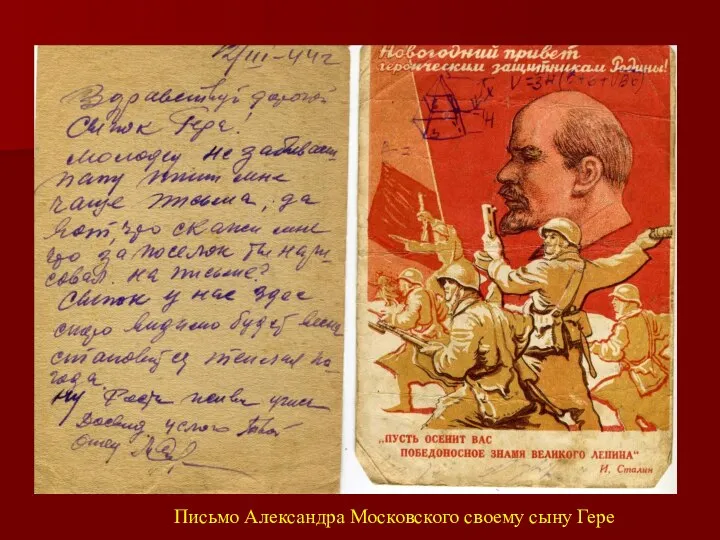 Здравствуй дорогой
Сынок Гера!
молодец не забывает
папу пиши мне
чаще письма, да
вот, что скажи мне
что за поселок ты нари-
совал. на письме?
Сынок у нас здес
скоро видимо будет весна
становится теплая по-
года.
Ну Гера живи учись
Отец
Новогодний привет
героическим защитникам Родины!
„ПУСТЬ ОСЕНИТ ВАС
ПОБЕДОНОСНОЕ ЗНАМЯ ВЕЛИКОГО ЛЕНИНА“
И. Сталин
Письмо Александра Московского своему сыну Гере